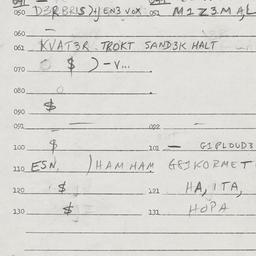 050 D3RBRIS)+JEN3 VOX 051 M1Z3MAL
060
061 KVAT3R TROKT SAND3K HALT
070 $ ) – V...
080
090 $
091 092
100 $ 101 — G1PLOUD3
110 ESN. )HAM HAM GEIKORMET
120 $ 121 HA, ITA,
130 $ 131 HOPA